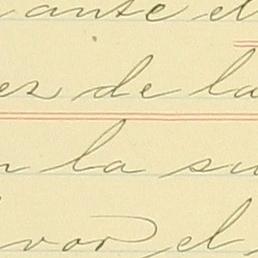 ante el
de la
la su
vor el